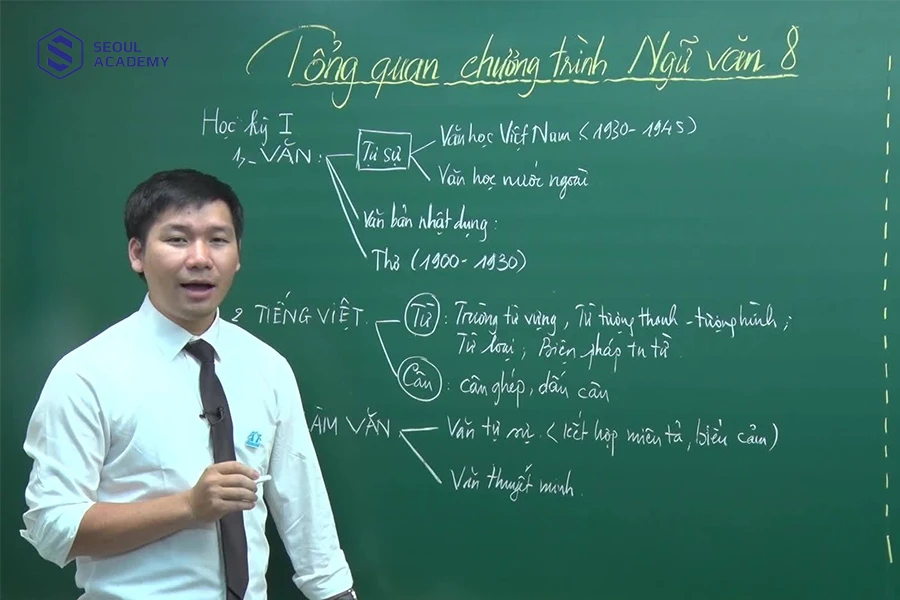 SEOUL
ACADEMY
Tổng quan chương trình Ngữ văn 8
Học kỳ I
1,- VĂN :
Tự sự
Văn học Việt Nam (1930 - 1945)
Văn học nước ngoài
Văn bản nhật dụng :
Thơ (1900 - 1930)
2 TIẾNG VIỆT
Từ : Trường từ vựng, Từ tượng thanh - tượng hình ;
Từ loại ; Biện pháp tu từ
Câu : câu ghép, dấu câu
ÀM VĂN
Văn tự sự (kết hợp miêu tả, biểu cảm)
Văn thuyết minh